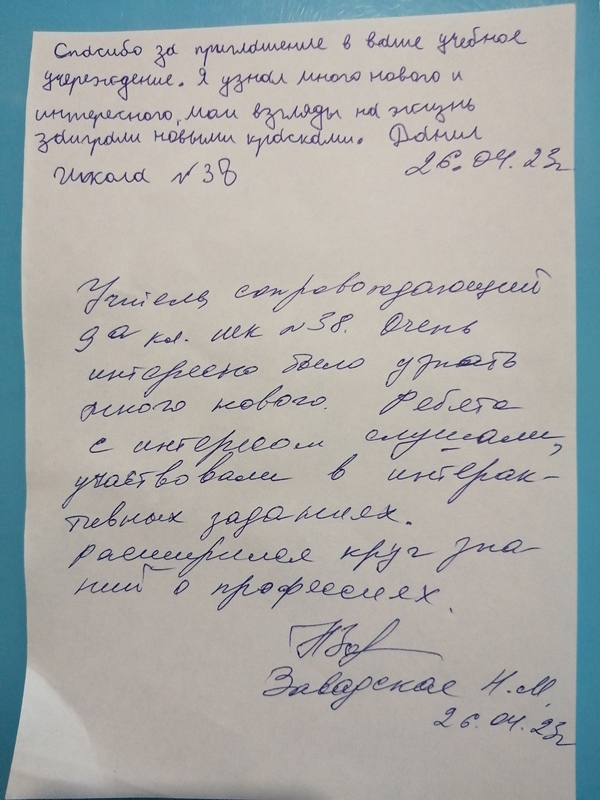 Спасибо за приглашение в ваше учебное
учереждение. Я узнал много нового и
интересного, мои взгляды на жизнь
заиграли новыми красками. Данил
26.04.23г
Школа №38
Учитель сопровождающий
9а кл. шк №38. Очень
интересно было узнать
много нового. Ребята
с интересом слушали,
участвовали в интерак-
тивных заданиях.
Расширился круг зна-
ний о профессиях.
Завадская Н.М.
26.04.23г